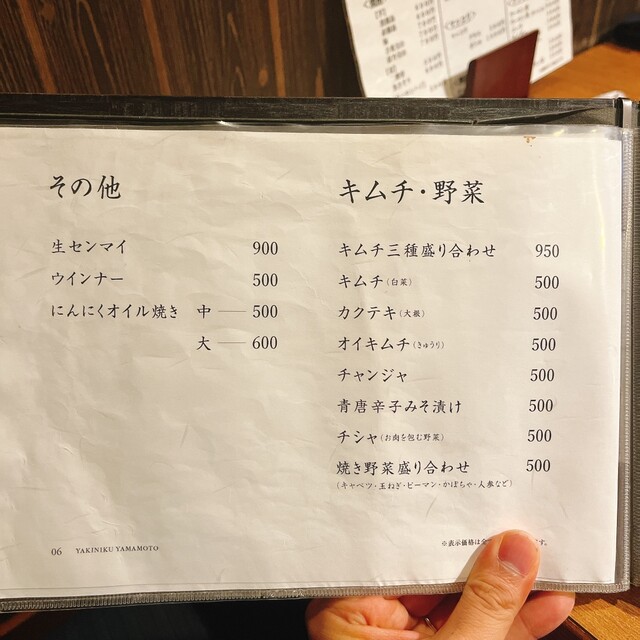 その他
生センマイ 900
ウインナー 500
にんにくオイル焼き 中 — 500
大 — 600
キムチ・野菜
キムチ三種盛り合わせ 950
キムチ(白菜) 500
カクテキ(大根) 500
オイキムチ(きゅうり) 500
チャンジャ 500
青唐辛子みそ漬け 500
チシャ(お肉を包む野菜) 500
焼き野菜盛り合わせ 500
(キャベツ・玉ねぎ・ピーマン・かぼちゃ・人参など)
06 YAKINIKU YAMAMOTO
※表示価格は全 です。